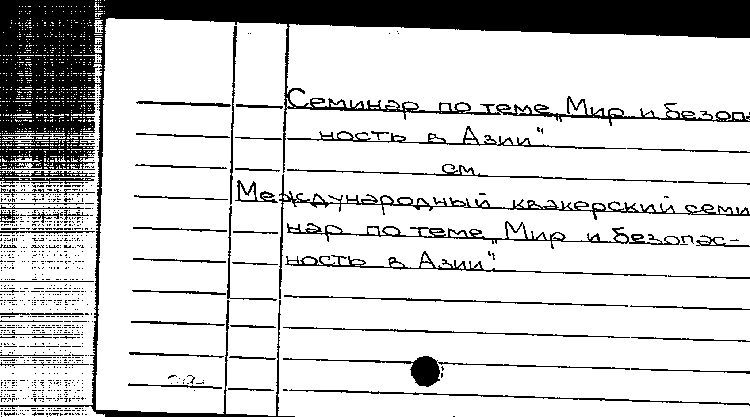 Семинар по теме „Мир и безопас-
ность в Азии"
см.
Международный квакерский семи
нар по теме „Мир и безопас-
ность в Азии".